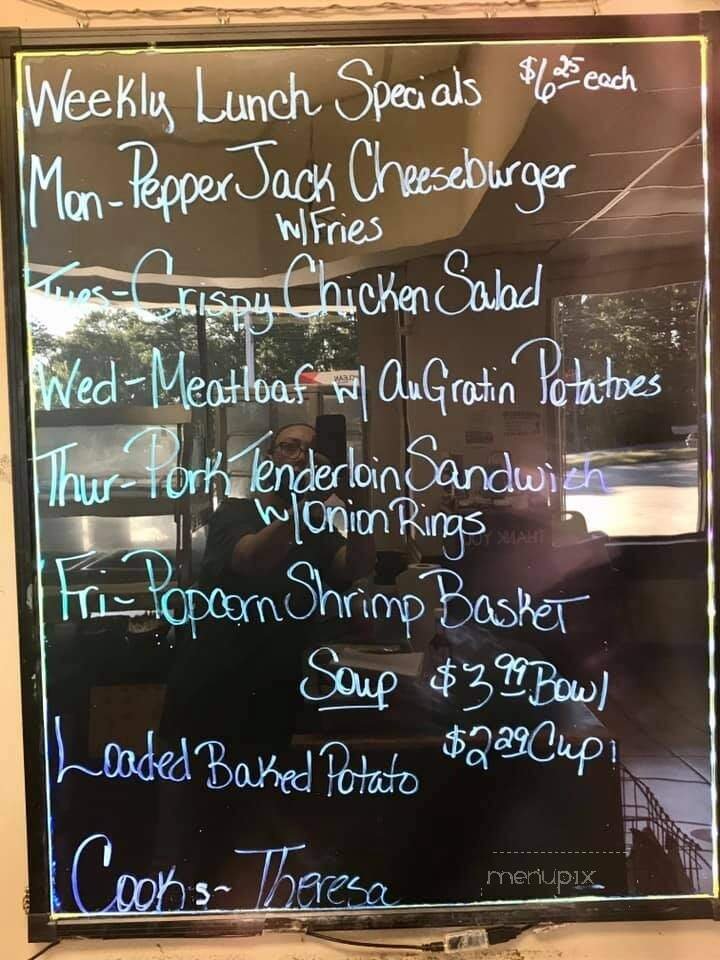 Weekly Lunch Specials $6.25 each
Mon-Pepper Jack Cheeseburger
w/Fries
Tues-Crispy Chicken Salad
Wed-Meatloaf w/ AuGratin Potatoes
Thur-Pork Tenderloin Sandwich
w/Onion Rings
Fri-Popcorn Shrimp Basket
Soup $3.99 Bowl
$2.29 Cup
Loaded Baked Potato
Cooks~ Theresa
menupix
THANK YOU